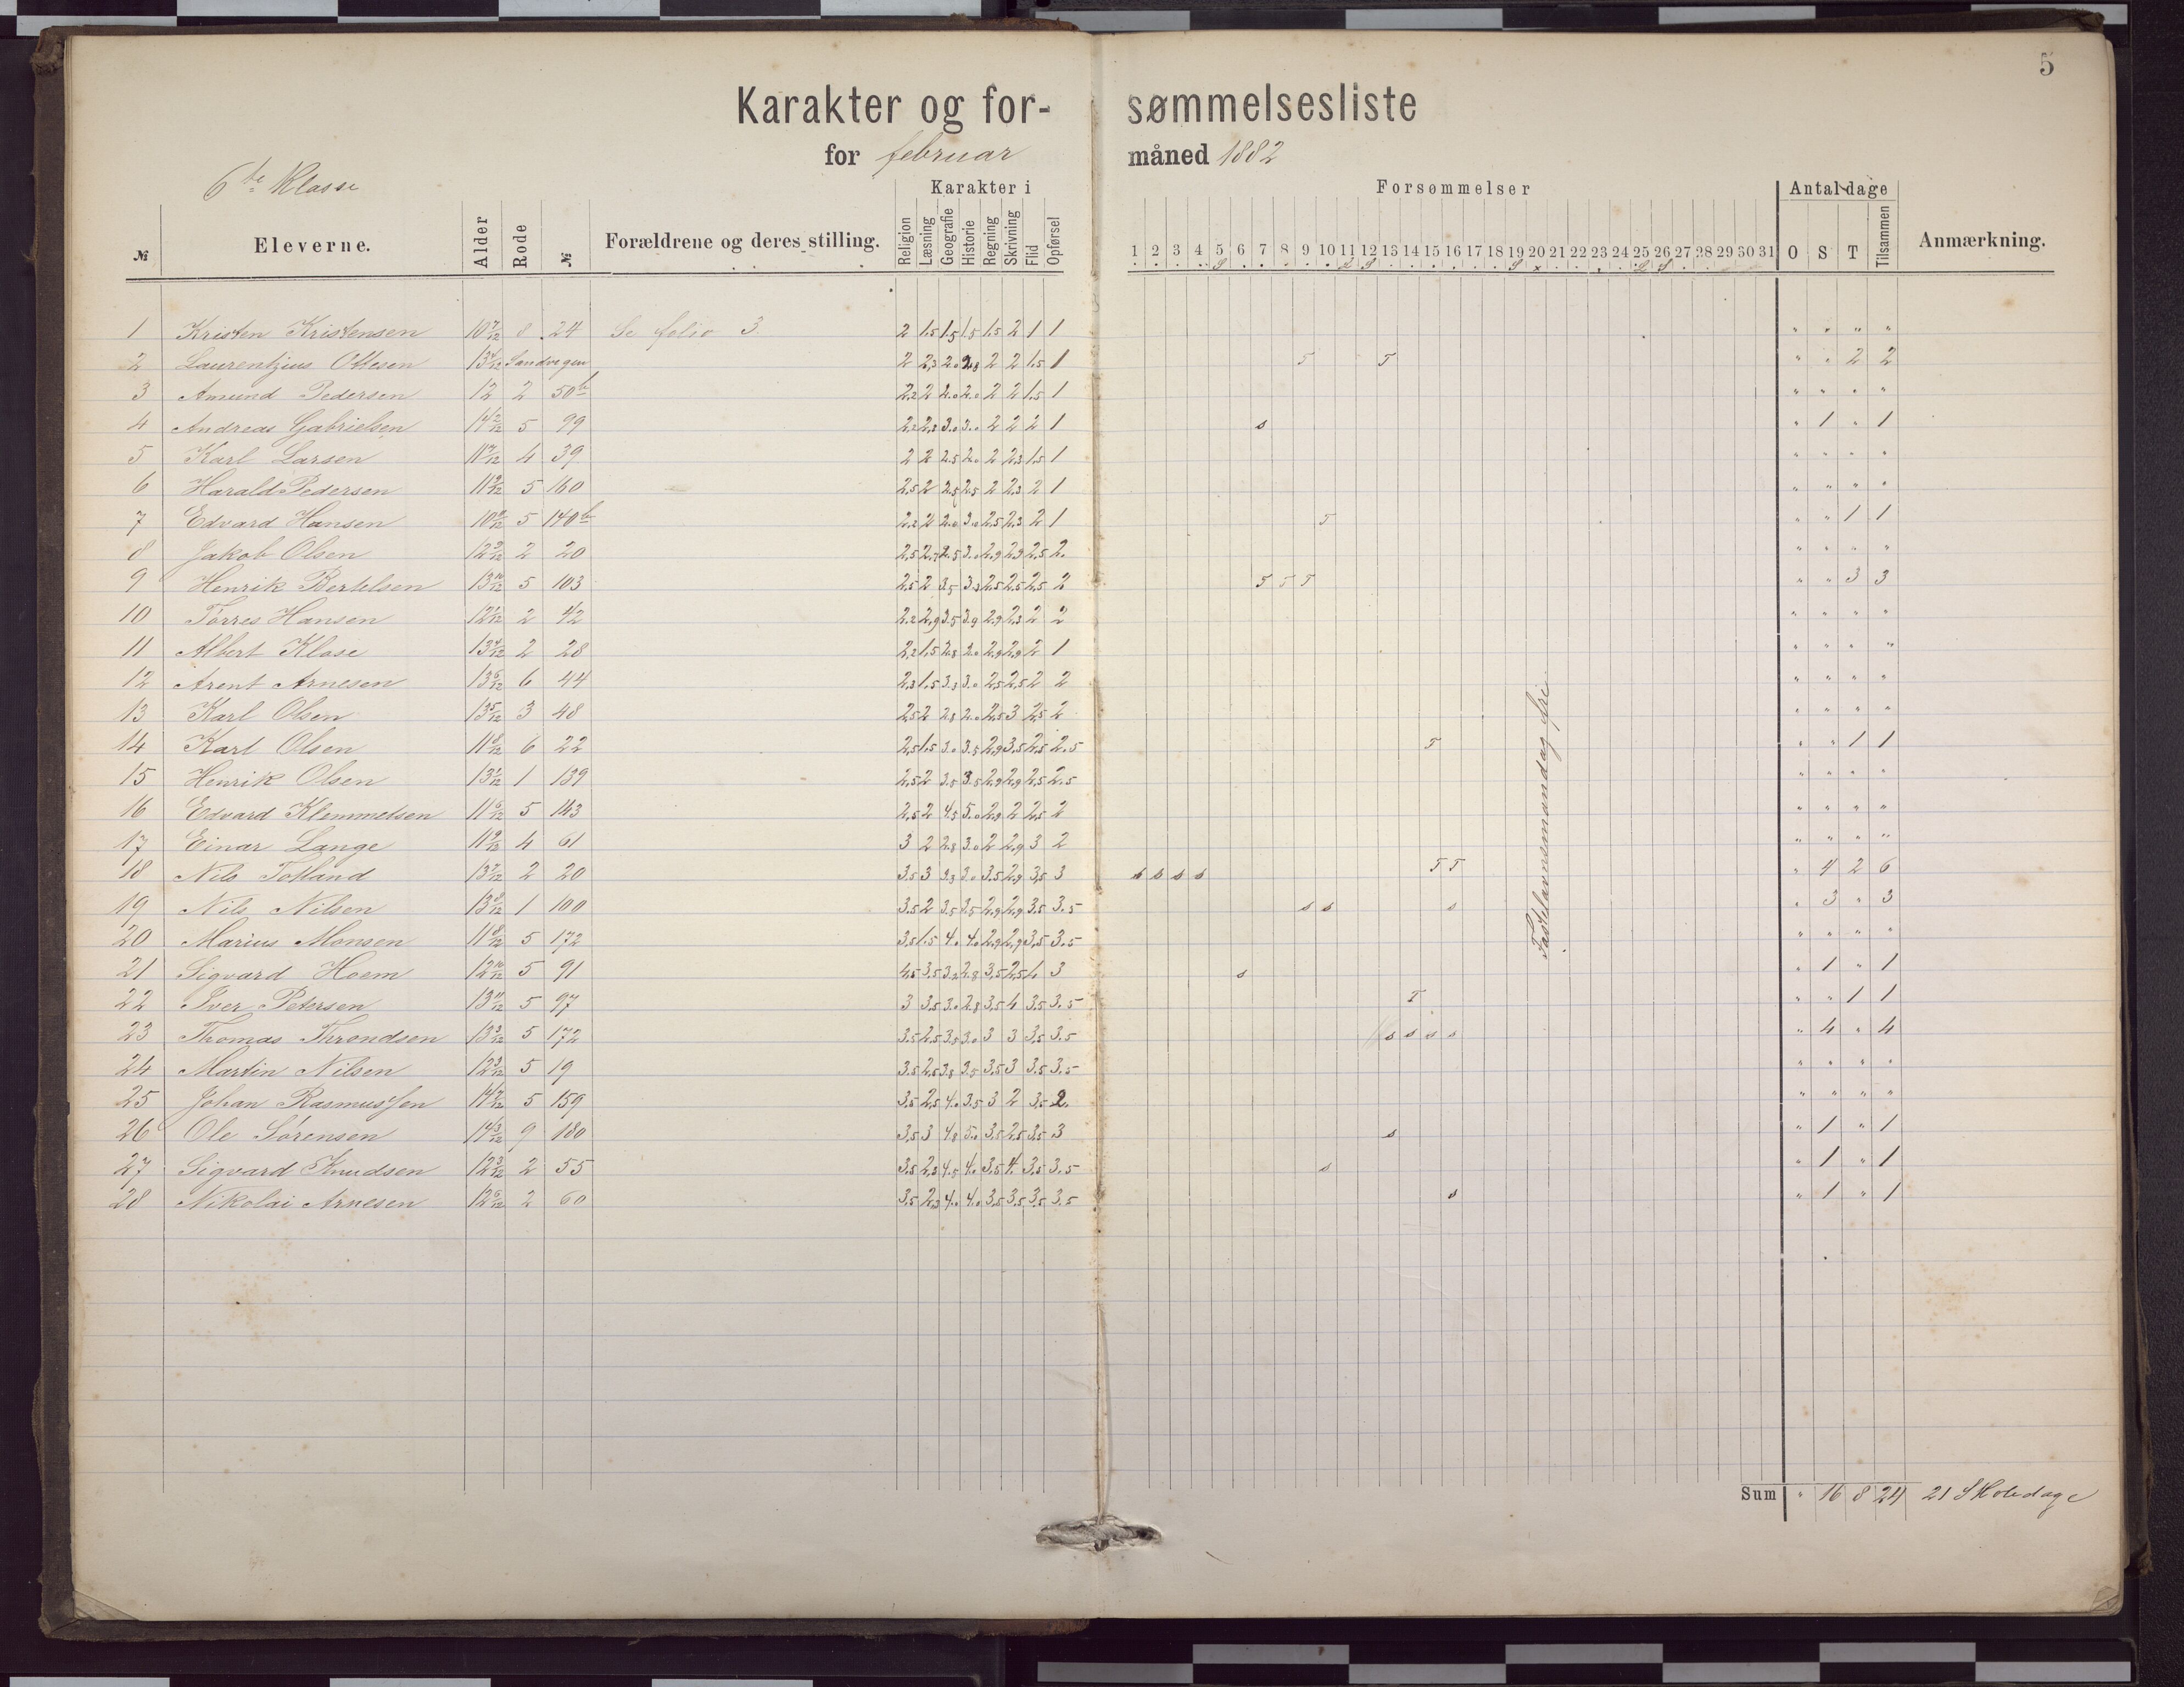 5
Karakter og for- sømmelsesliste
for februar måned 1882
6te Klasse
Karakter i Forsømmelser Antal dage
№ Eleverne. Alder Rode № Forældrene og deres stilling. Religion Læsning Geografie Historie Regning Skrivning Flid Opførsel 1 2 3 4 5 6 7 8 9 10 11 12 13 14 15 16 17 18 19 20 21 22 23 24 25 26 27 28 29 30 31 O S T Tilsammen Anmærkning.
1 Kristen Kristensen 10 7/12 8 24 Se folio 3 2 1.5 1.5 1.5 1.5 2 1 1 " " " "
2 Laurentzius Ottesen 13 4/12 Sandvigen 2 2,3 2.0 2.8 2 2 1.5 1 T T " " 2 2
3 Amund Pedersen 12 2 50b 2.2 2 2.0 2.0 2 2 1.5 1 " " " "
4 Andreas Gabrielsen 14 2/12 5 99 2.2 2.3 3.0 3.0 2 2 2 1 s " 1 " 1
5 Karl Larsen 11 7/12 4 39 2 2 2.5 2.0 2 2.3 1.5 1 " " " "
6 Harald Pedersen 11 9/12 5 160 2.5 2 2.5 2.5 2 2.3 2 1 " " " "
7 Edvard Hansen 10 9/12 5 140b 2.2 2 2.0 3.0 2.5 2.3 2 1 T " " 1 1
8 Jakob Olsen 12 2/12 2 20 2.5 2.7 2.5 3.0 2.9 2.9 2.5 2. " " " "
9 Henrik Bertelsen 13 10/12 5 103 2.5 2 3.5 3.3 2.5 2.5 2.5 2 T T T " " 3 3
10 Tørres Hansen 12 1/12 2 42 2.2 2.9 3.5 3.9 2.9 2.3 2 2 " " " "
11 Albert Klose 13 4/12 2 28 2.2 1.5 2.8 2.0 2.9 2.9 2 1 " " " "
12 Arent Arnesen 13 5/12 6 44 2.3 1.5 3.3 3.0 2.5 2.5 2 2 " " " "
13 Karl Olsen 13 5/12 3 48 2.5 2 2.8 2.0 2.5 3 2.5 2 " " " "
14 Karl Olsen 11 8/12 6 22 2.5 1.5 3.0 3.5 2.9 3.5 2.5 2.5 T " " 1 1
15 Henrik Olsen 13 1/12 1 139 2.5 2 3.8 3.8 2.9 2.9 2.5 2.5 " " " "
16 Edvard Klemmetsen 11 6/12 5 143 2.5 2 4.5 5.0 2.9 2 2.5 2 " " " "
17 Einar Lange 11 9/12 4 61 3 2 2.8 3.0 2 2.9 3 2 " " " "
18 Nils Tolland 13 7/12 2 20 3.5 3 3.3 3.0 3.5 2.9 3.5 3 s s s s T T " 4 2 6
19 Nils Nilsen 13 8/12 1 100 3.5 2 3.5 3.5 2.9 2.9 3.5 3.5 s s s " 3 " 3
20 Marius Monsen 11 8/12 5 172 3.5 1.5 4.0 4.0 2.9 2.9 3.5 3.5 " " " "
21 Sigvard Hoem 12 10/12 5 91 4.5 3.5 3.2 2.8 3.5 2.5 4 3 s " 1 " 1
22 Iver Petersen 13 11/12 5 97 3 3.5 3.0 2.8 3.5 4 3.5 3.5 T " " 1 1
23 Thomas Throndsen 13 2/12 5 172 3.5 2.5 3.5 3.0 3 3 3.5 3.5 s s s s " 4 " 4
24 Martin Nilsen 12 3/12 5 19 3.5 2.5 3.8 3.5 3.5 3 3.5 3.5 " " " "
25 Johan Rasmussen 14 7/12 5 159 3.5 2.5 4.0 3.5 3 2 3.5 2. " " " "
26 Ole Sørensen 14 3/12 9 180 3.5 3 4.8 5.0 3.5 2.5 3.5 3 s " 1 " 1
27 Sigvard Knudsen 12 3/12 2 55 3.5 2.3 4.5 4.0 3.5 4. 3.5 3.5 s " 1 " 1
28 Nikolai Arnesen 12 6/12 2 60 3.5 2.3 4.0 4.0 3.5 3.5 3.5 3.5 s " 1 " 1
Fastelavensmandag fri.
Sum " 16 8 24 21 Skoledage